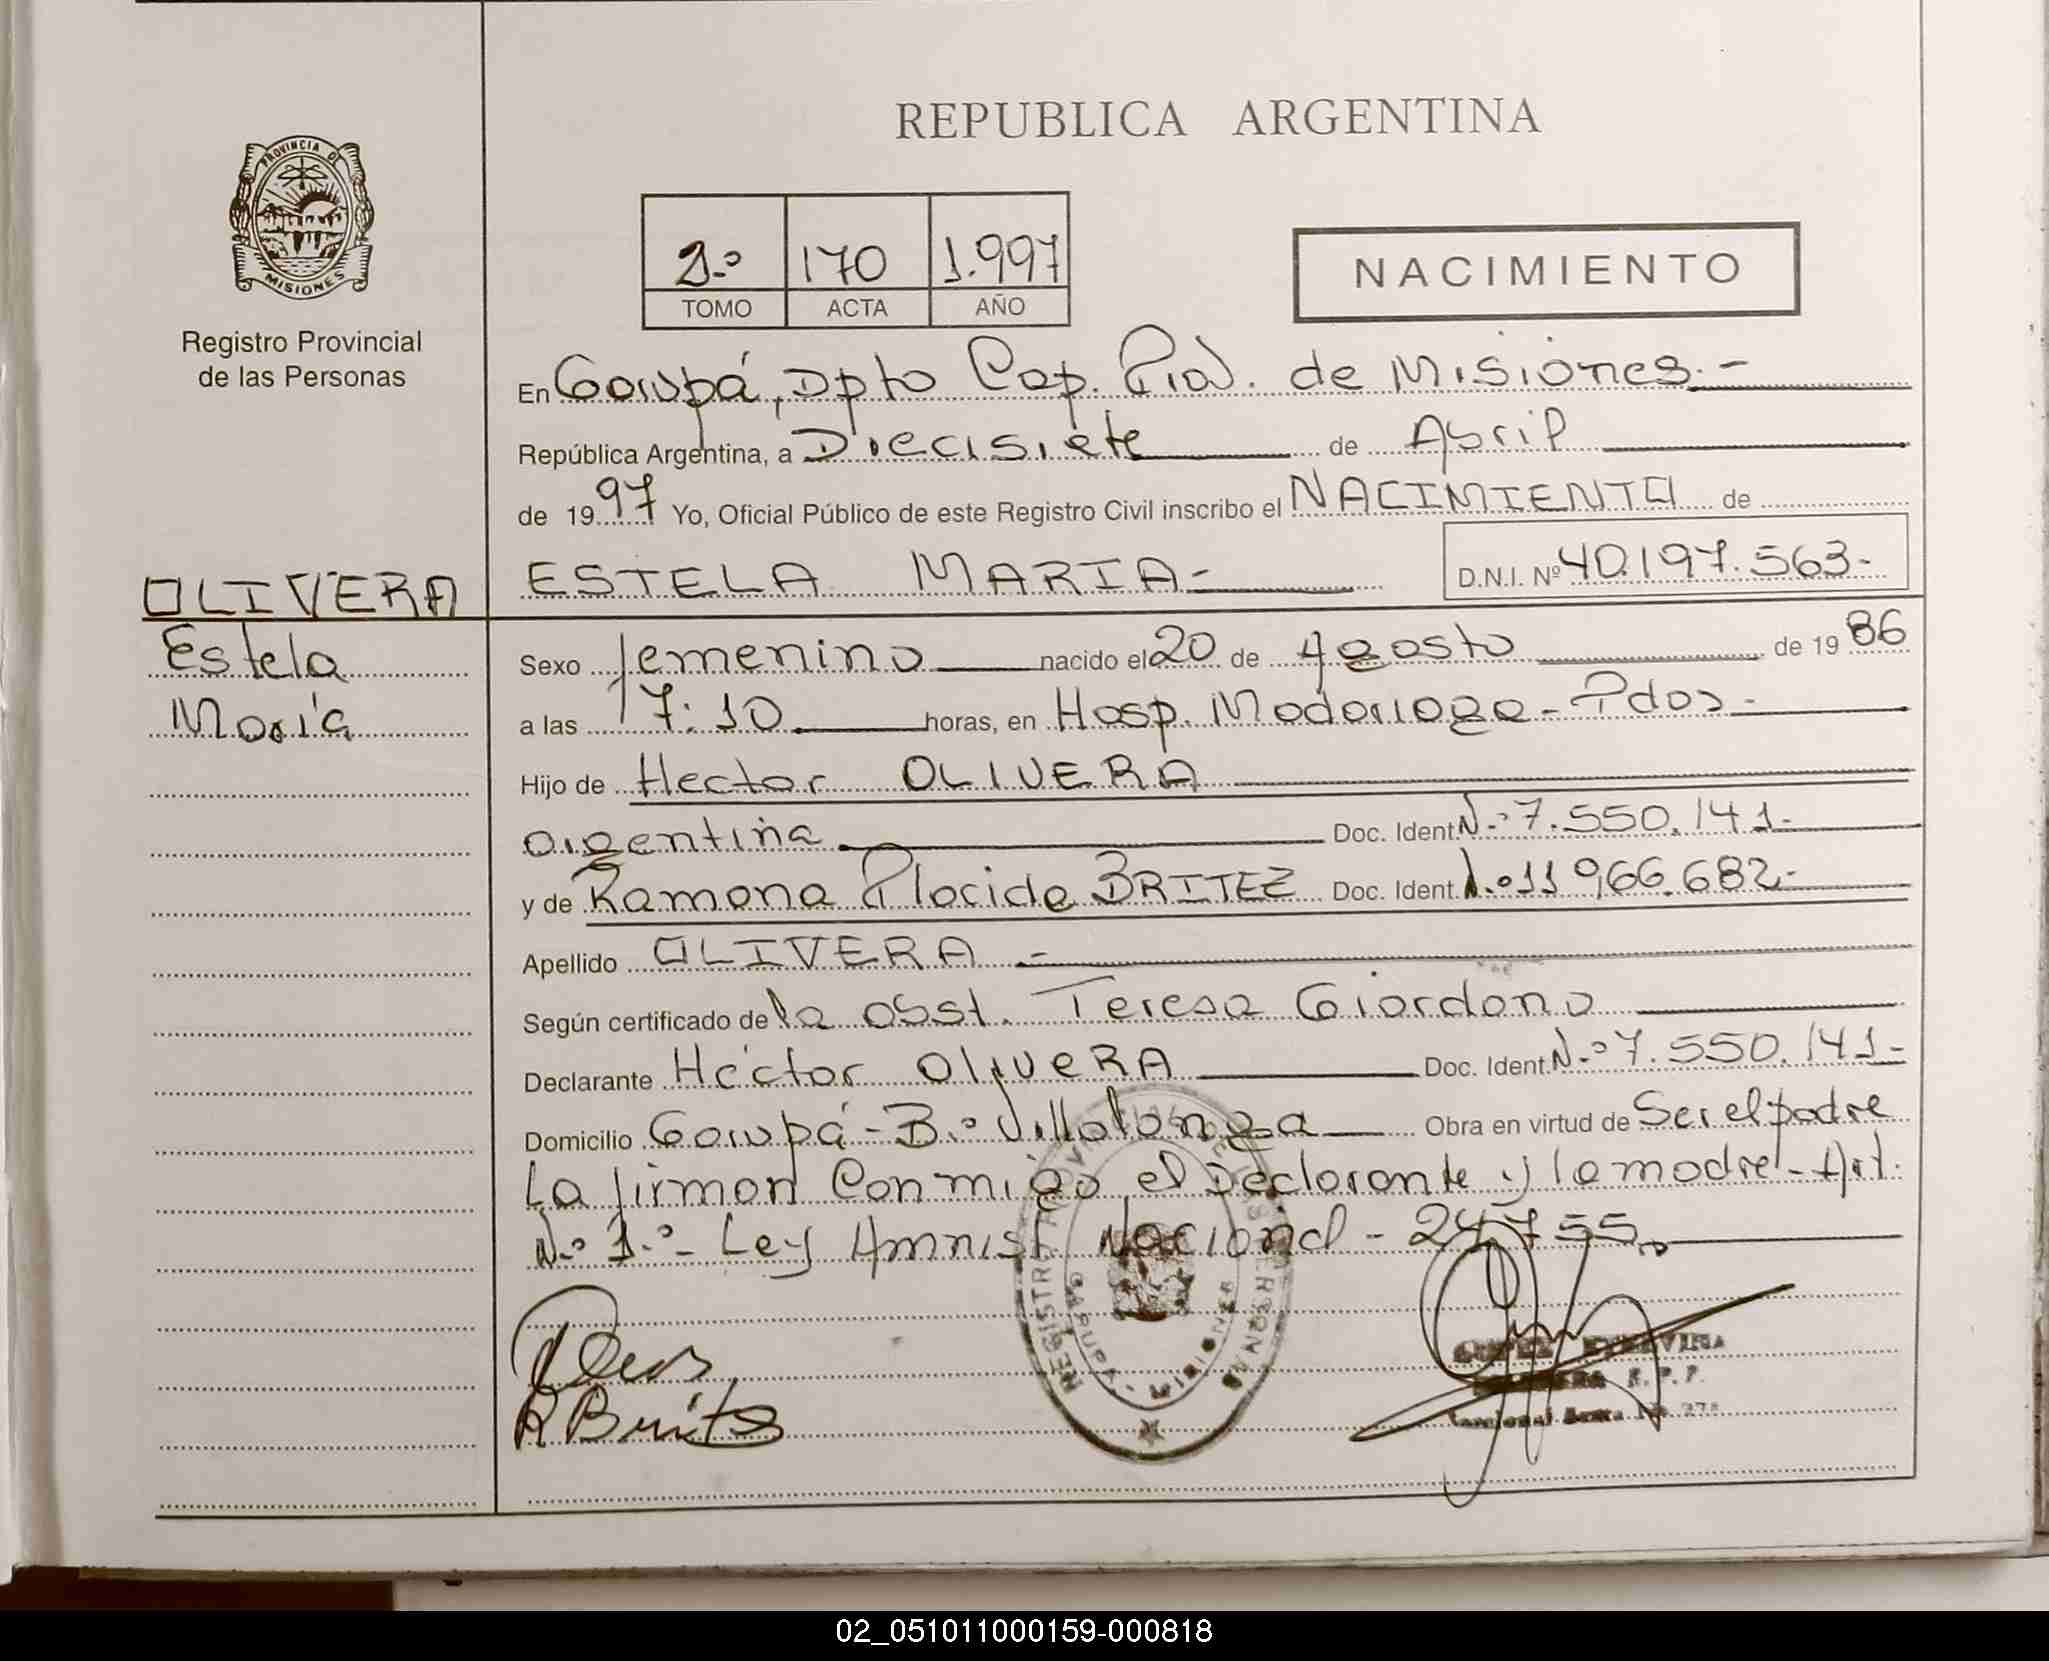 REPUBLICA ARGENTINA
PROVINCIA DE
MISIONES
Registro Provincial
de las Personas
2.º 170 1.997
TOMO ACTA AÑO
NACIMIENTO
En Garupá, Dpto Cap. Pia. de Misiones.-
República Argentina, a Diecisiete de Abril
de 1997 Yo, Oficial Público de este Registro Civil inscribo el NACIMIENTO de
ESTELA MARIA- D.N.I. Nº 40.197.563-
OLIVERA
Estela
María
Sexo femenino nacido el 20 de Agosto de 1986
a las 17:10 horas, en Hosp. Madariaga - Pdas-
Hijo de Hector OLIVERA
argentina Doc. Ident. N.º 7.550.141-
y de Ramona Placida BRITEZ Doc. Ident. N.º 11.966.682-
Apellido OLIVERA -
Según certificado de la obst. Teresa Giordano
Declarante Héctor OliveRA Doc. Ident. N.º 7.550.141-
Domicilio Garupá - B.º Villalonga Obra en virtud de Ser el padre
La firman Conmigo el Declarante y la madre - Art.
N.º 1.º - Ley Amnist. Nacional - 24.755
REGISTRO PROVINCIAL DE LAS PERSONAS
GARUPA - MISIONES
R Britez
02_051011000159-000818